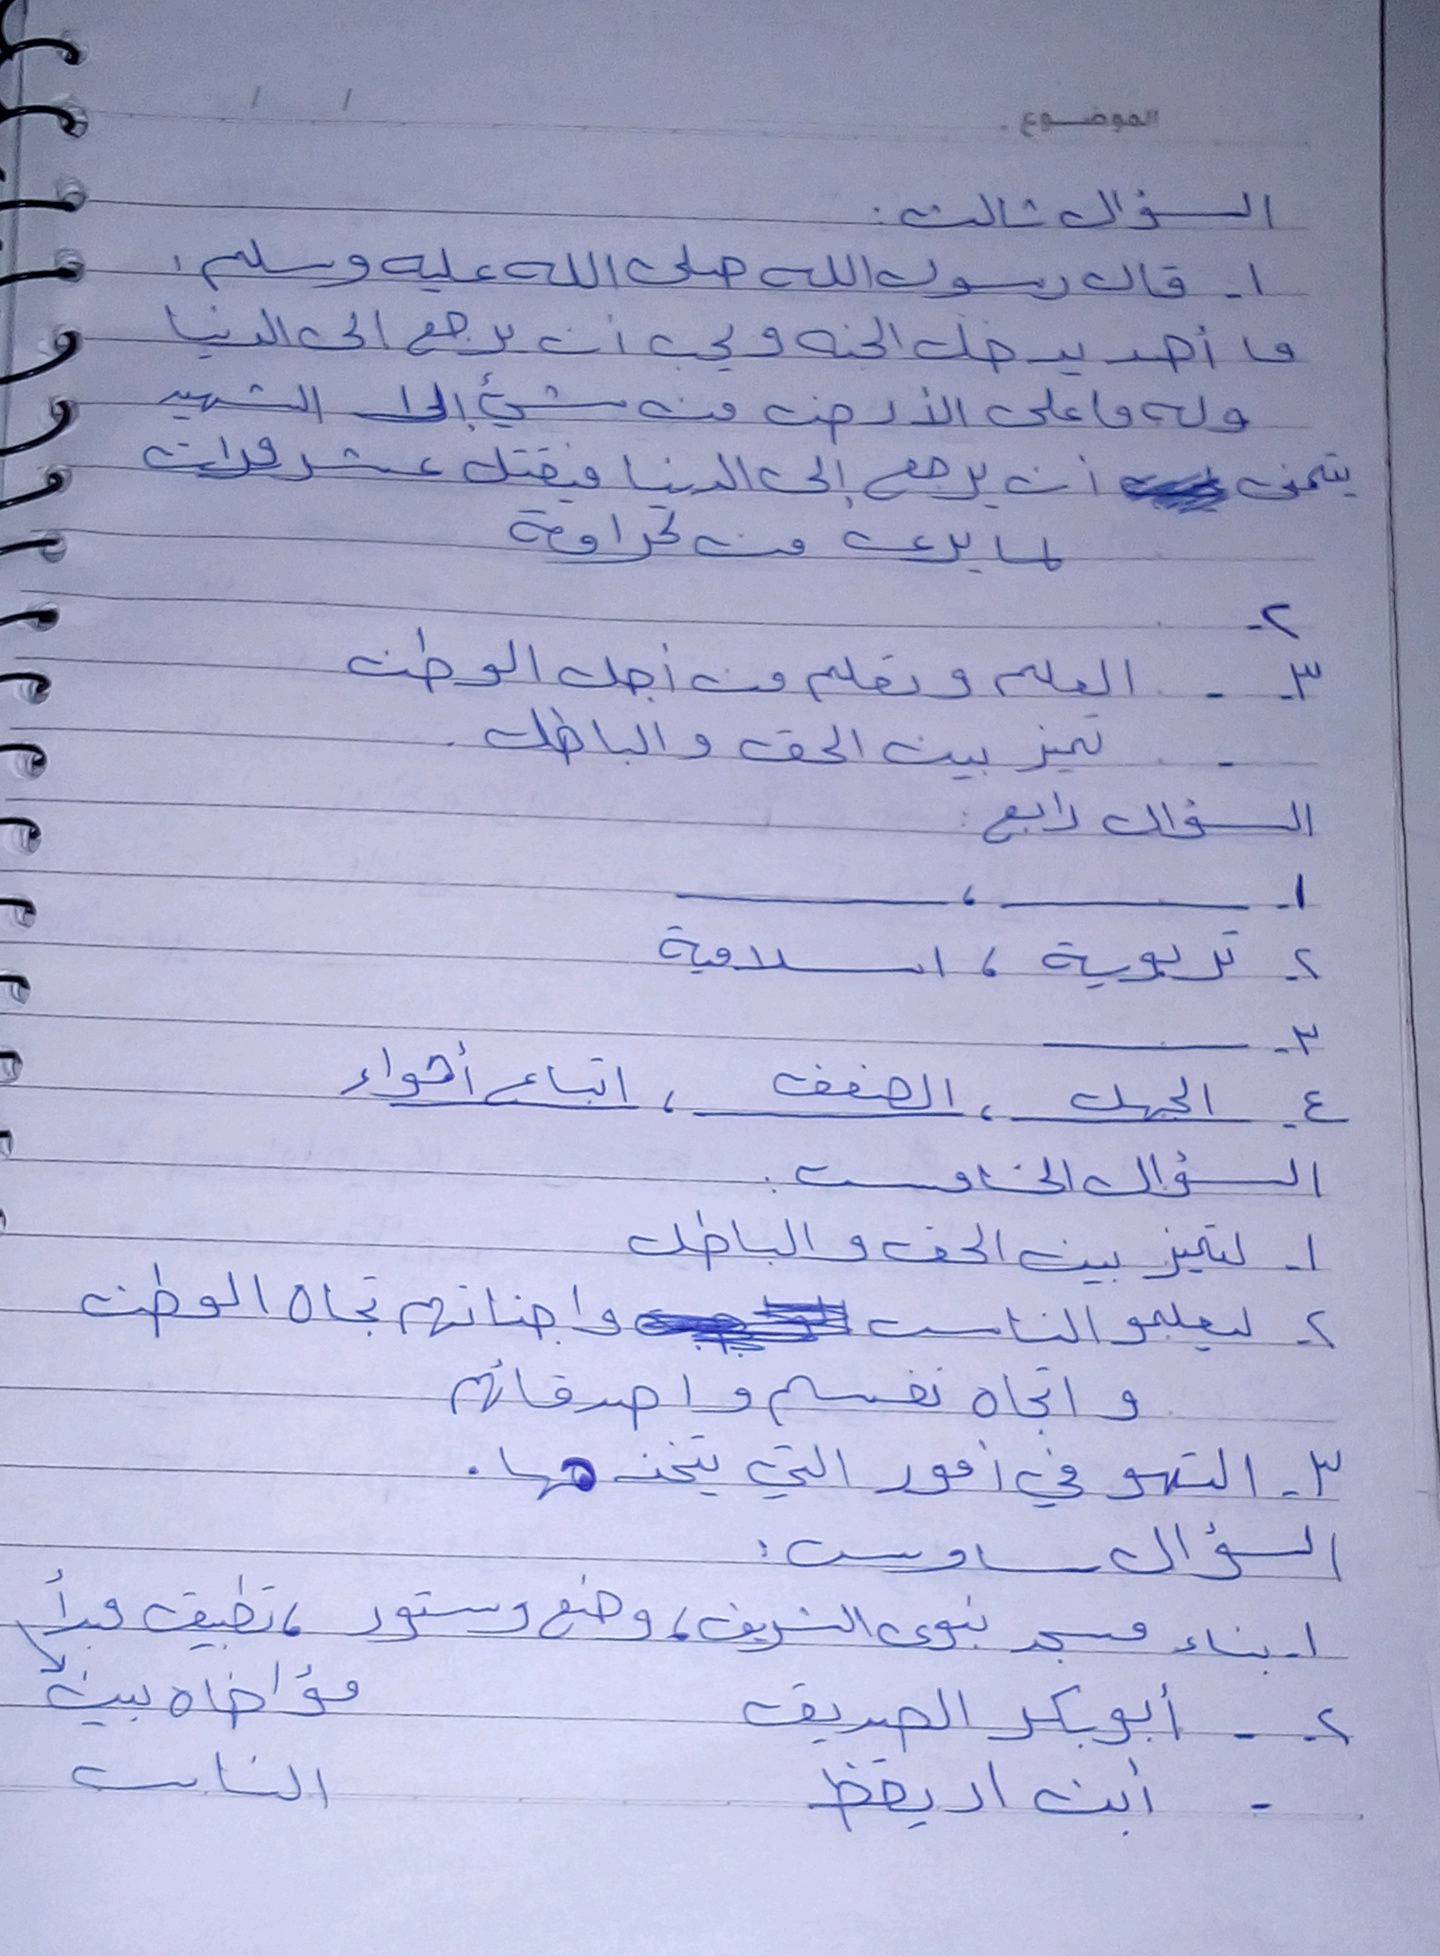 الموضوع.
السؤال ثالث:
١- قال رسول الله صلى الله عليه وسلم:
ما أحد يدخل الجنه ويحب أن يرجع الى الدنيا
وله ما على الأرض من شيئ إلا الشهيد
يتمنى أن يرجع إلى الدنيا فيقتل عشر مرات
لما يرى من
٢-
٣- - العلم و تعلم من أجل الوطن
- تميز بين الحق والباطل.
السؤال رابع:
١- ،
٢- تربوية ، اسلامية
٣-
٤- الجهل ، الضعف ، اتباع أهواء
السؤال الخامس:
١- لتميز بين الحق والباطل
٢- ليعلمو الناس واجناتهم تجاه الوطن
و اتجاه نفسهم واصدقائهم
٣- في أمور التي
السؤال سادس:
١- بناء مسجد نبوى الشريف، وضع دستور ، تطبيق مبدأ
مؤاخاه بين
٢- - أبو بكر الصديق
الناس
- أبن اريقظ